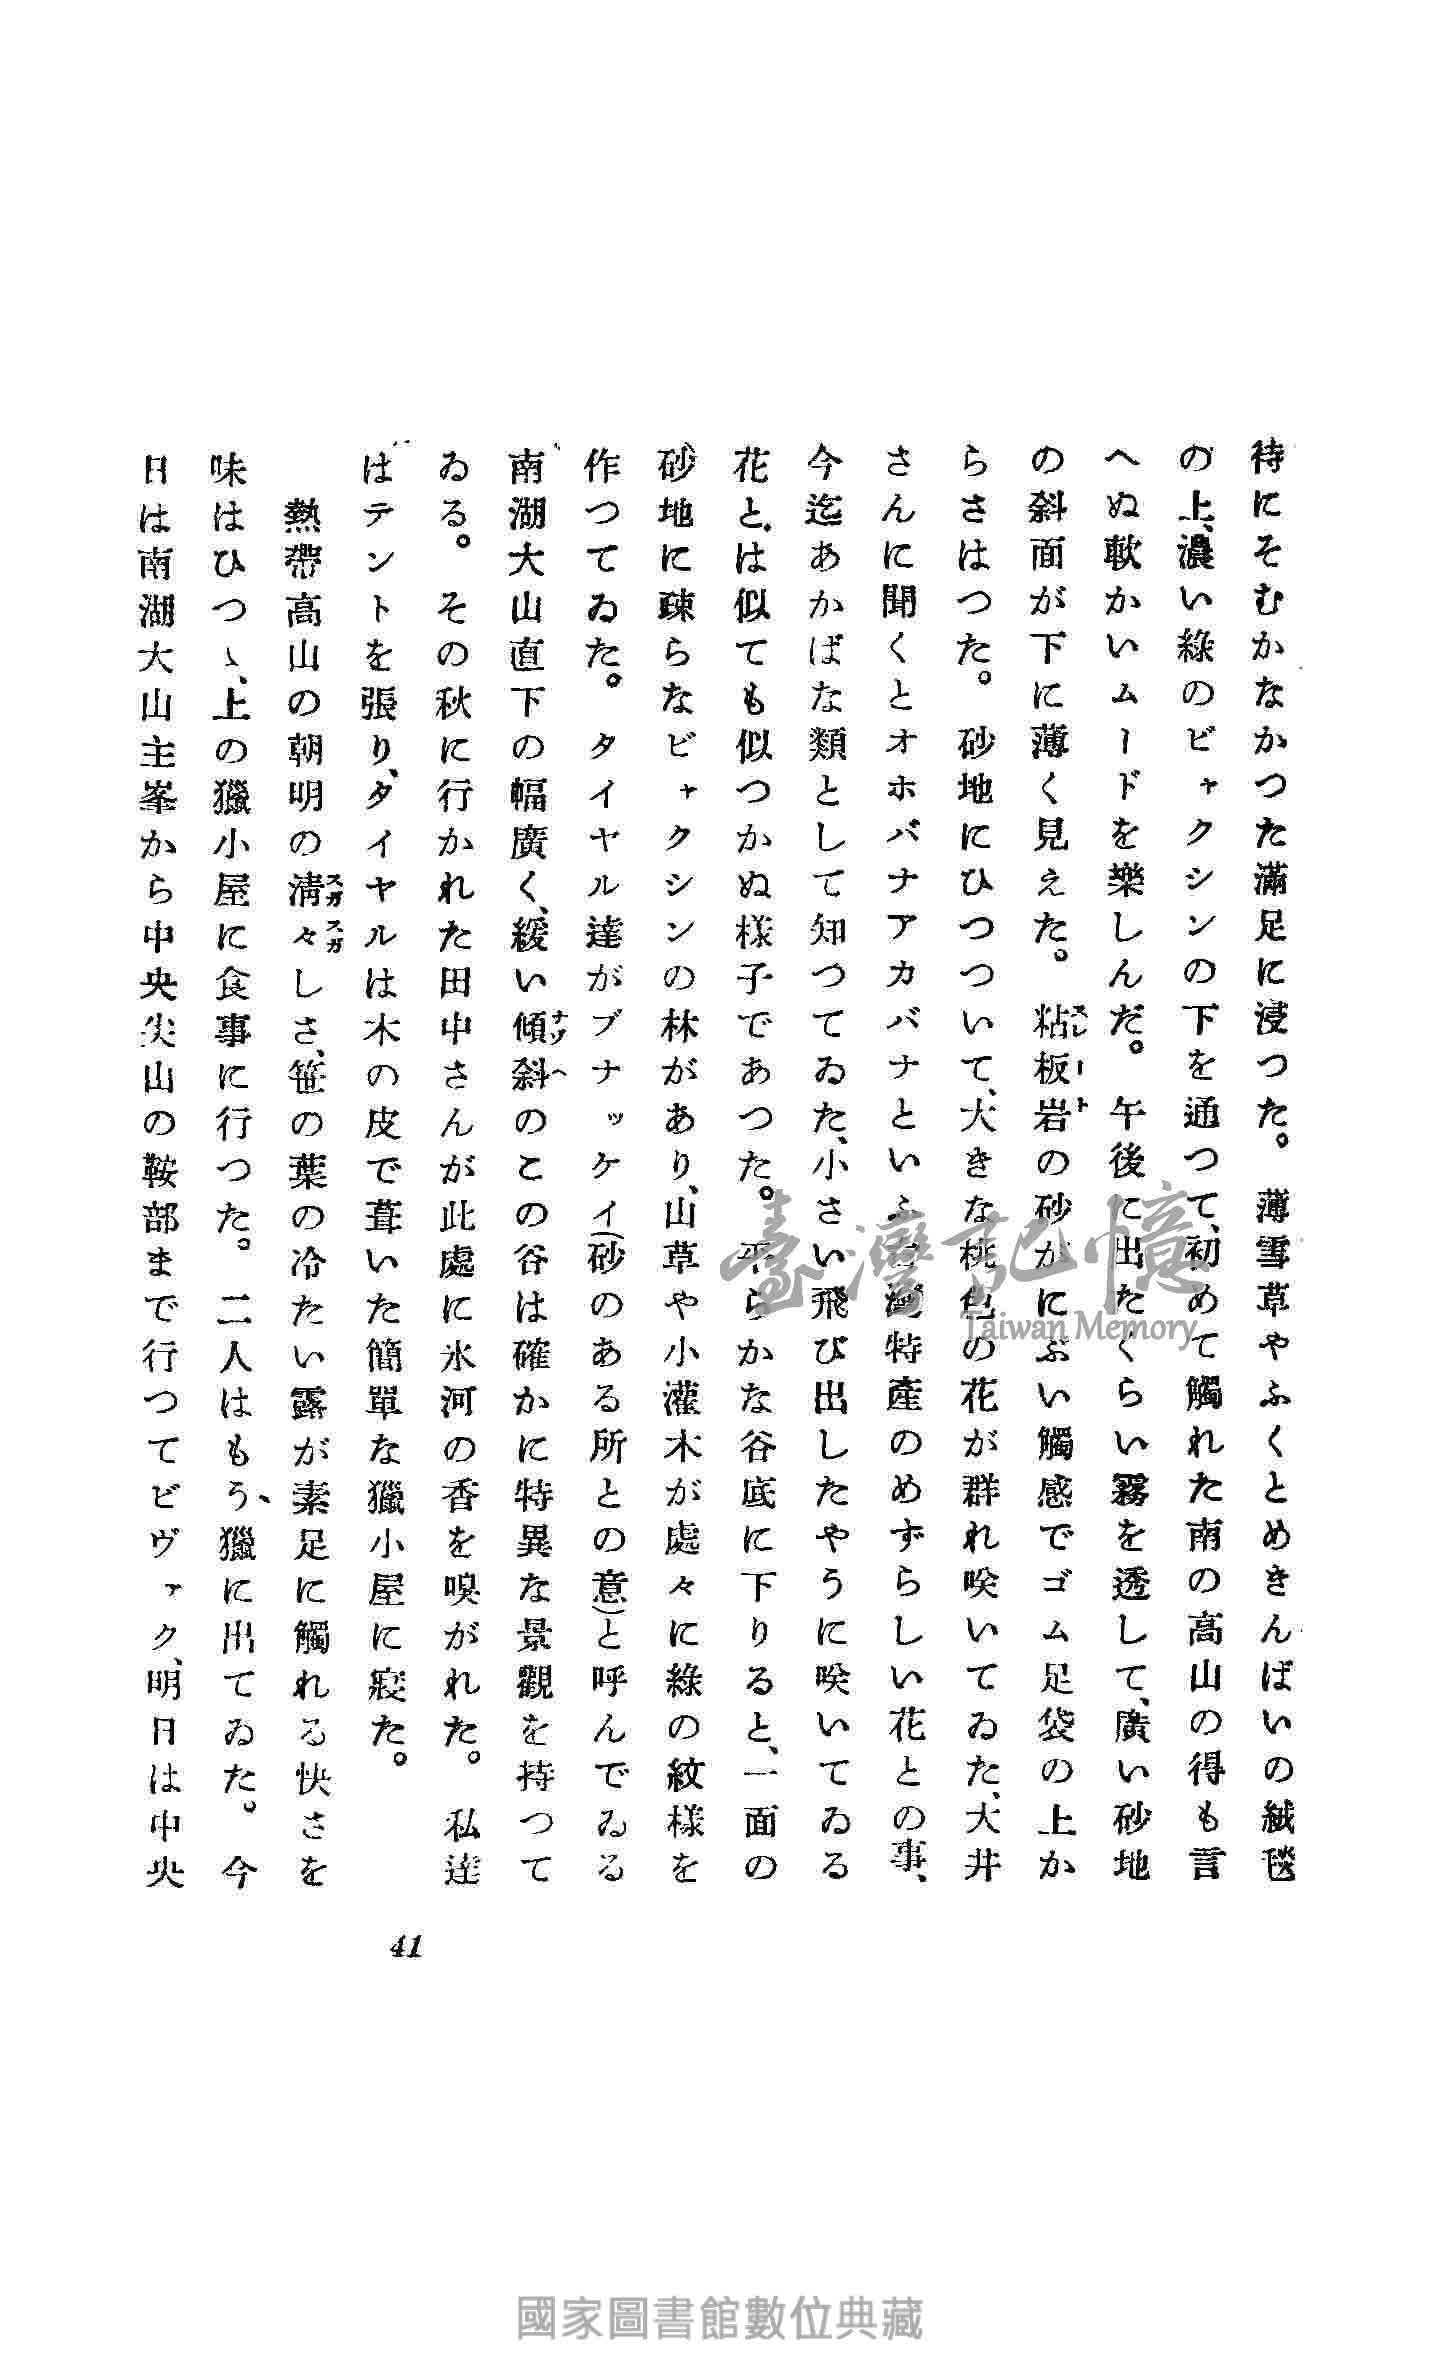 待にそむかなかつた滿足に浸つた。薄雪草やふくとめきんばいの絨毯
の上、濃い綠のビャクシンの下を通つて、初めて觸れた南の高山の得も言
へぬ軟かいムードを樂しんだ。午後に出たくらい霧を透して、廣い砂地
の斜面が下に薄く見えた。粘板岩の砂がにぶい觸感でゴム足袋の上か
らさはつた。砂地にひつついて、大きな桃色の花が群れ咲いてゐた、大井
さんに聞くとオホバナアカバナといふ台灣特產のめずらしい花との事、
今迄あかばな類として知つてゐた、小さい飛び出したやうに咲いてゐる
花とは似ても似つかぬ樣子であつた。平らかな谷底に下りると、一面の
砂地に疎らなビャクシンの林があり、山草や小灌木が處々に綠の紋樣を
作つてゐた。タイヤル達がブナッケイ(砂のある所との意)と呼んでゐる
南湖大山直下の幅廣く、緩い傾斜のこの谷は確かに特異な景觀を持つて
ゐる。その秋に行かれた田中さんが此處に氷河の香を嗅がれた。私達
はテントを張り、タイヤルは木の皮で葺いた簡單な獵小屋に寢た。
熱帶高山の朝明の淸々しさ、笹の葉の冷たい露が素足に觸れる快さを
味はひつゝ、上の獵小屋に食事に行つた。二人はもう、獵に出てゐた。今
日は南湖大山主峯から中央尖山の鞍部まで行つてビヴァク、明日は中央
41
臺灣記憶
Taiwan Memory
國家圖書館數位典藏